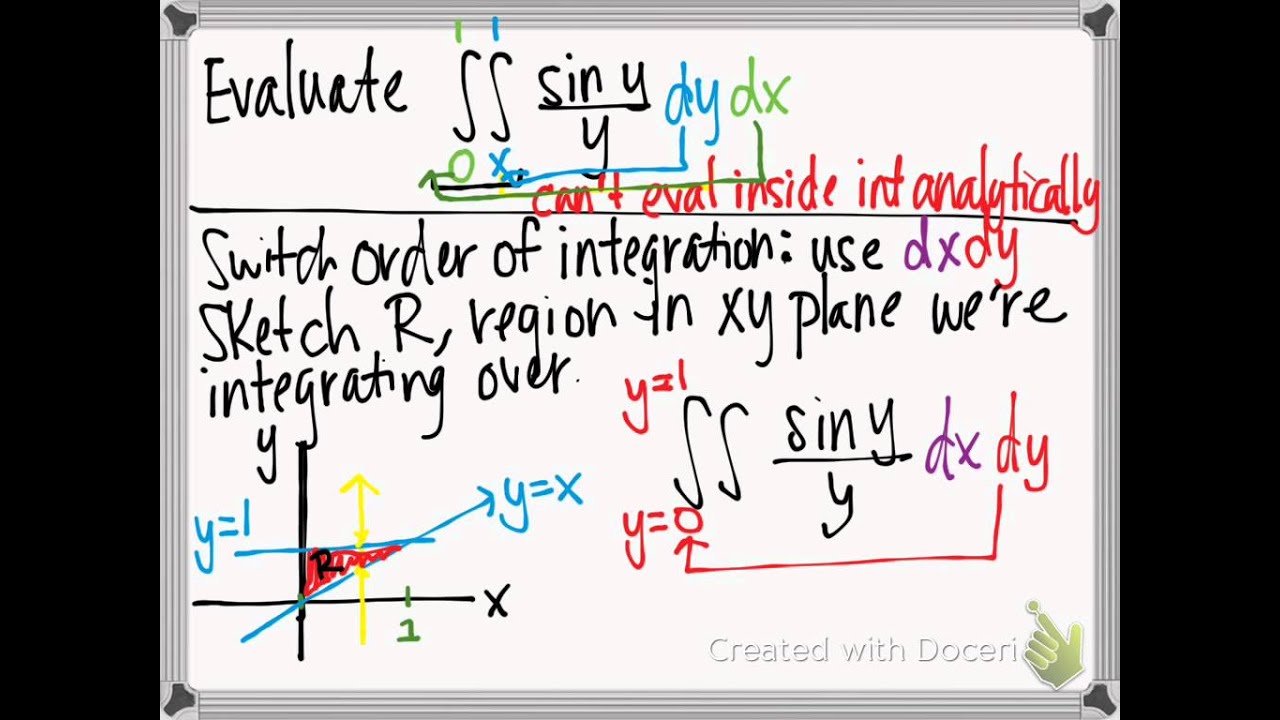 Evaluate ∫₀¹∫ₓ¹ sin y/y dy dx
can't eval inside int analytically
Switch order of integration: use dxdy
Sketch R, region in xy plane we're
integrating over.
y=1
∫∫ sin y/y dx dy
y=0
y
y=x
y=1
R
x
1
Created with Doceri